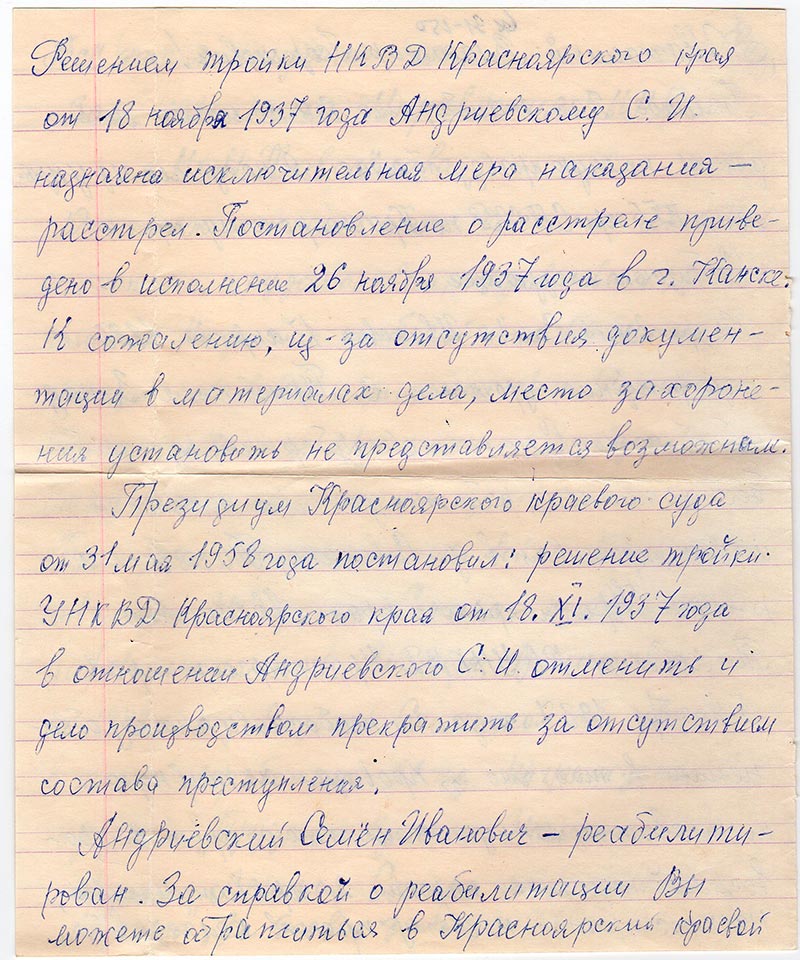 Решением тройки НКВД Красноярского края
от 18 ноября 1937 года Андриевскому С. И.
назначена исключительная мера наказания —
расстрел. Постановление о расстреле приве-
дено в исполнение 26 ноября 1937 года в г. Канске.
К сожалению, из-за отсутствия докумен-
тации в материалах дела, место захороне-
ния установить не представляется возможным.
Президиум Красноярского краевого суда
от 31 мая 1958 года постановил: решение тройки
УНКВД Красноярского края от 18. XI. 1937 года
в отношении Андриевского С. И. отменить и
дело производством прекратить за отсутствием
состава преступления.
Андриевский Семён Иванович — реабилити-
рован. За справкой о реабилитации Вы
можете обратиться в Красноярский краевой